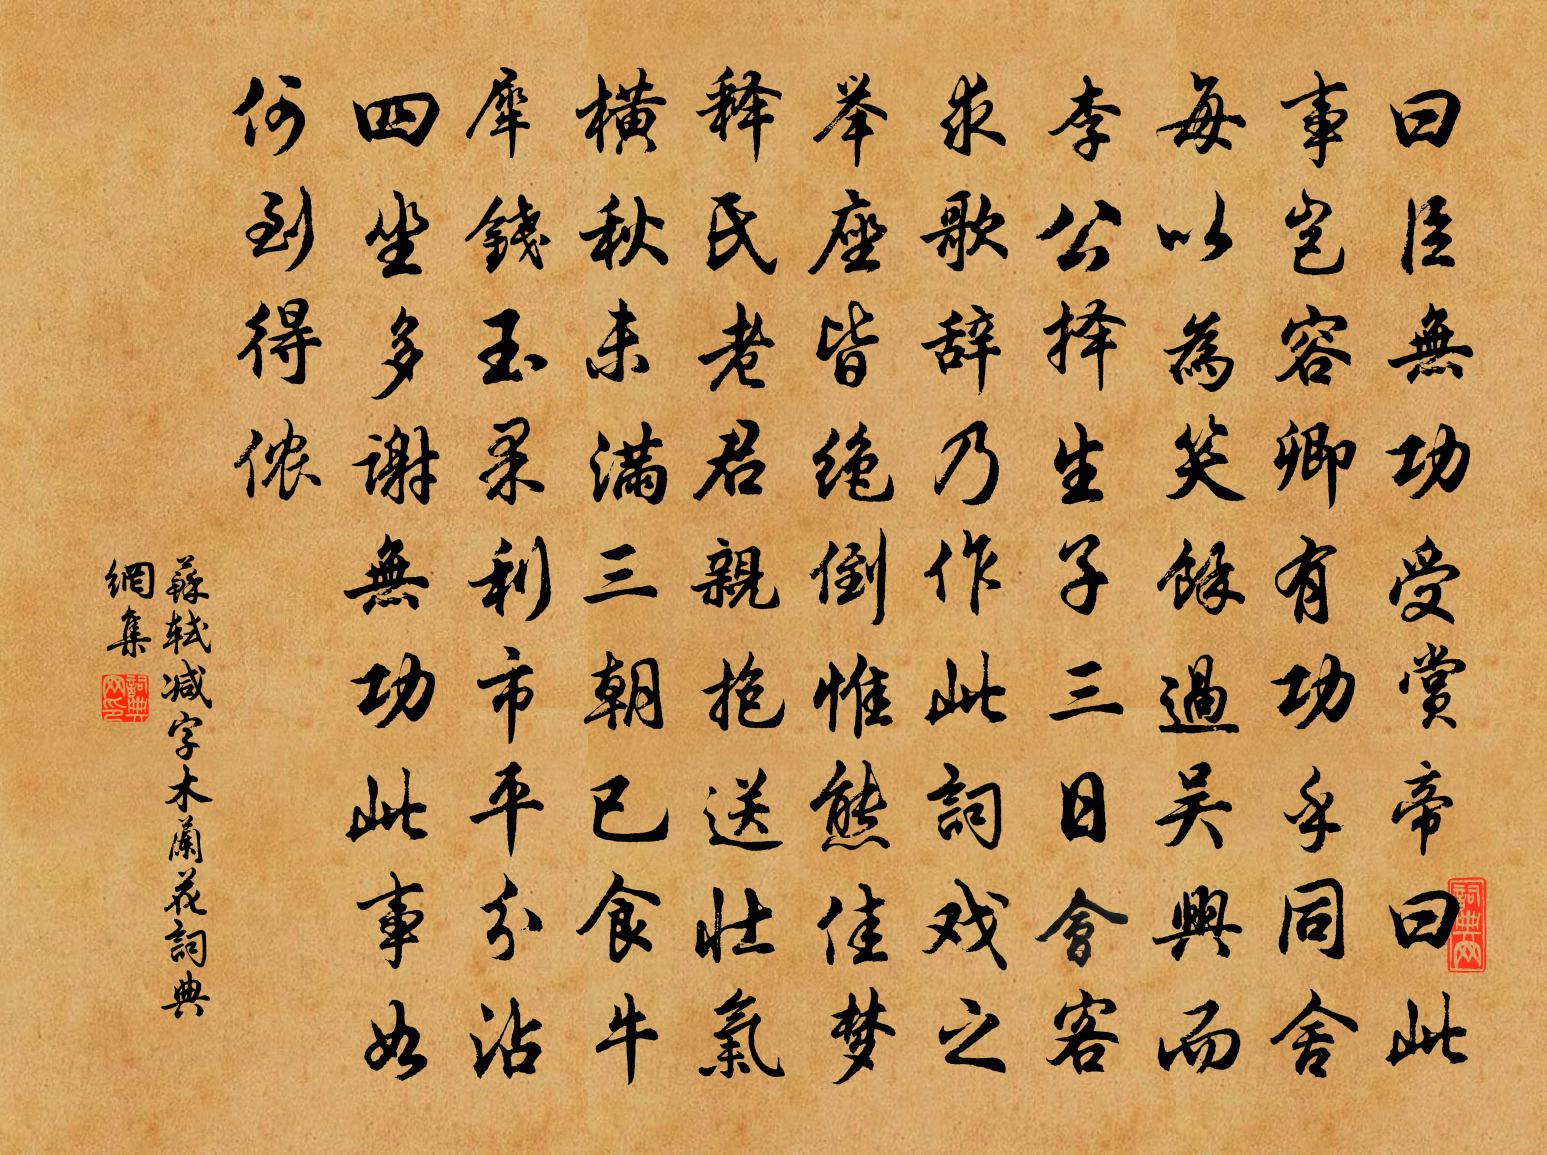 曰臣無功受賞帝曰此
事岂容卿有功乎同舍
每以為笑餘過吴興而
李公择生子三日會客
求歌辞乃作此詞戏之
举座皆绝倒惟熊佳梦
释氏老君親抱送壮氣
横秋未满三朝已食牛
犀錢玉果利市平分沾
四坐多謝無功此事如
何到得侬
蘇轼减字木蘭花詞典
網集
詞典